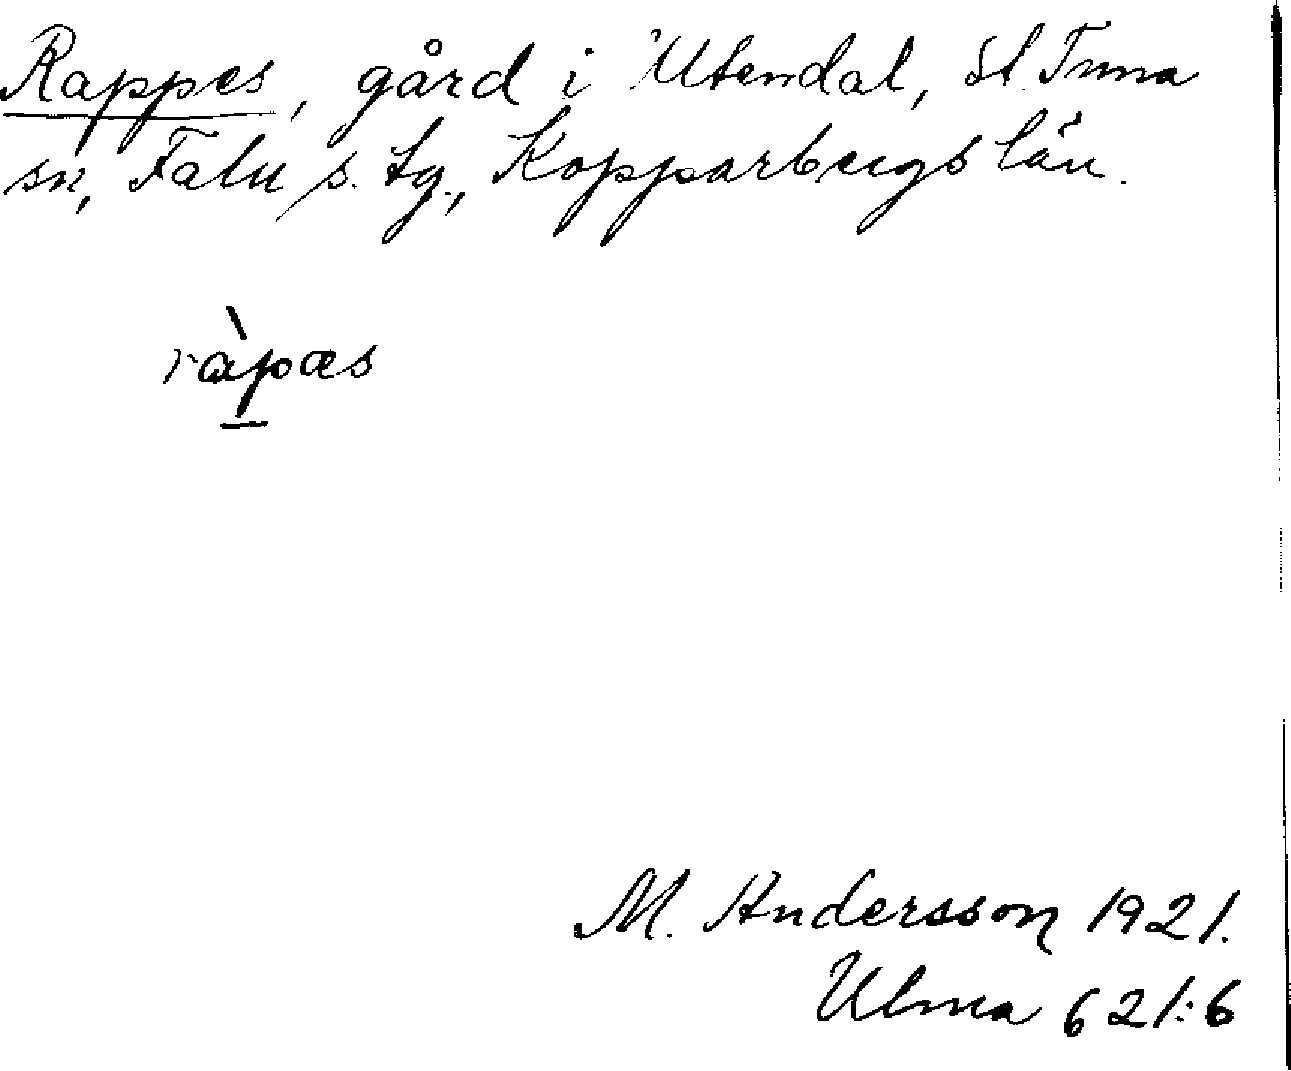 Rappes, gård i Utendal, St. Tuna
sn, Falu s. tg., Kopparbergs län.
ràpæs
M. Andersson 1921.
Ulma 621:6